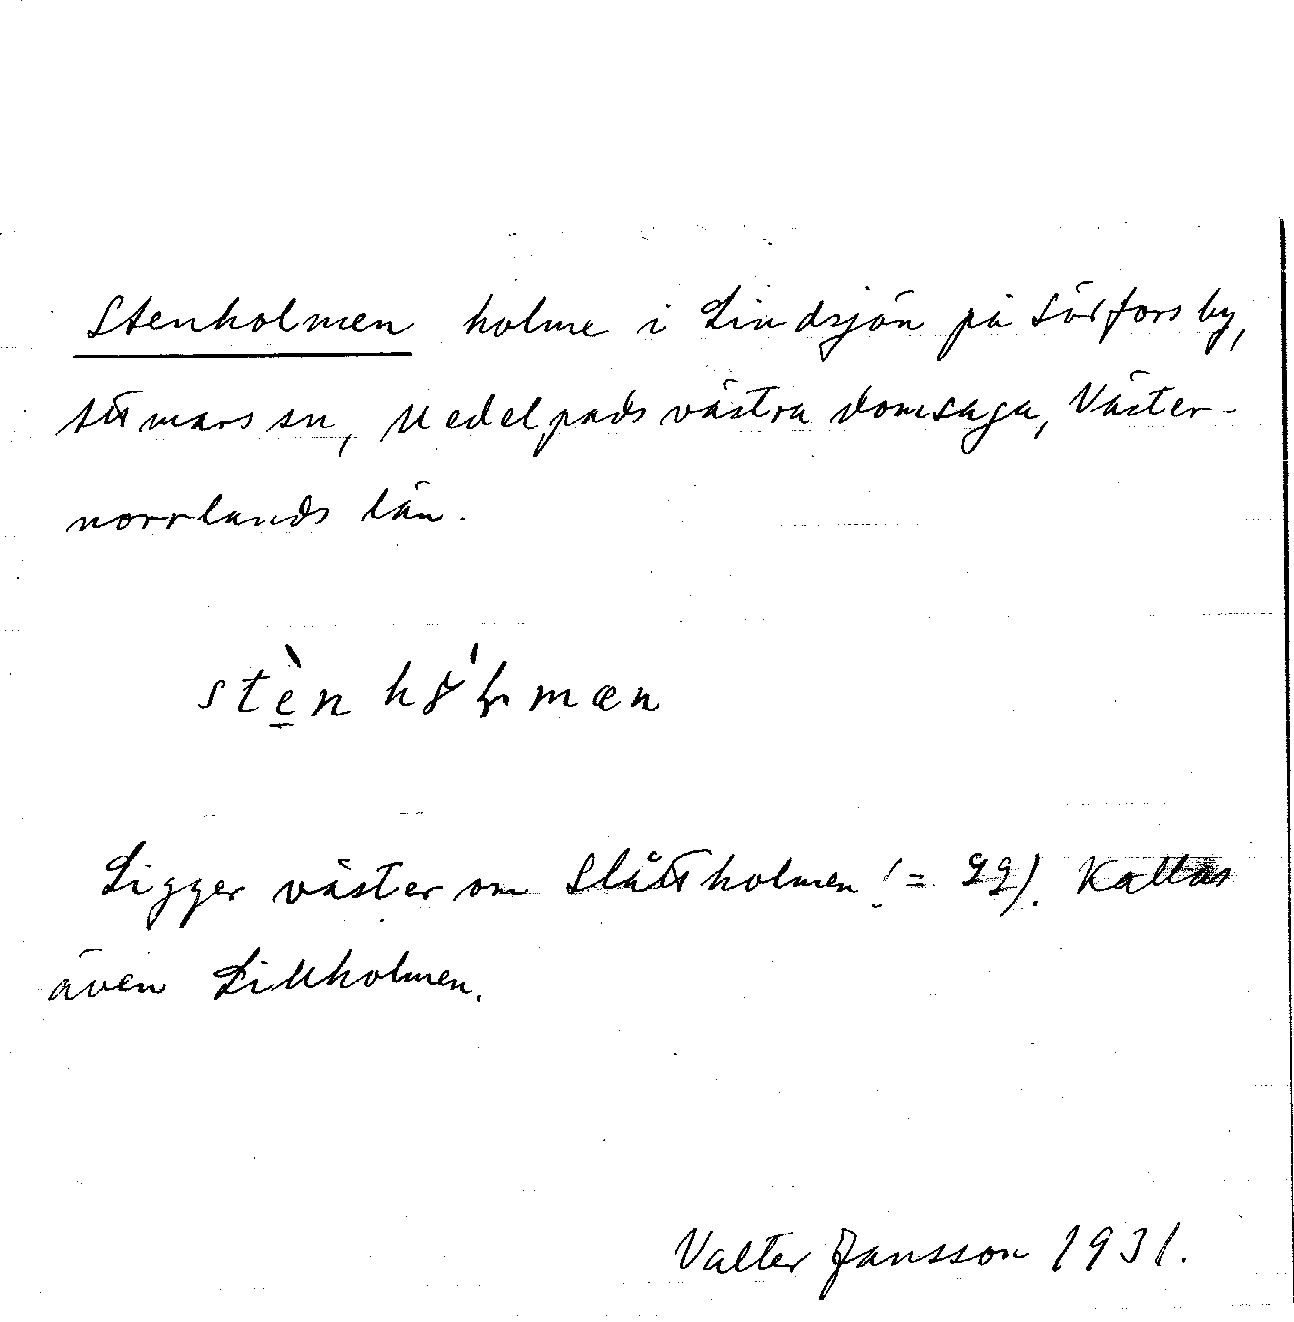 Stenholmen holme i Lindsjön på Sörfors by,
Attmars sn, Medelpads västra domsaga, Väster-
norrlands län.
Ligger väster om Slåttholmen (= 29). Kallas
även Lillholmen.
Valter Jansson 1931.